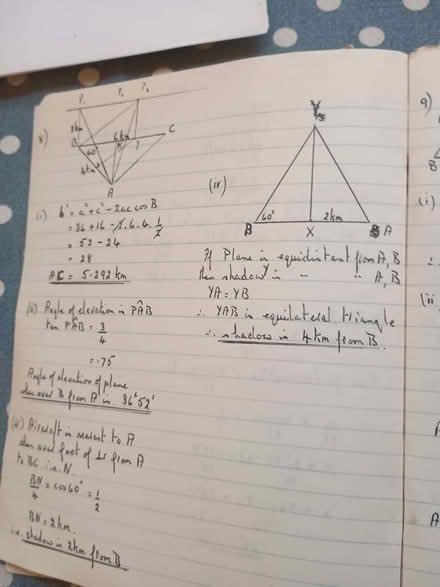 P₁ P₂ P₃
3km
8)
B 6km C
60°
N Y
4km
A
(i) b² = a² + c² - 2ac cos B
= 36 + 16 - 2.6.4.1/2
= 52 - 24
= 28
AC = 5.292 km
(ii) Angle of elevation is PÂB
tan PÂB = 3/4
= .75
Angle of elevation of plane
when over B from A is 36°52'
(iii) Aircraft is nearest to A
when over foot of ⊥r from A
to BC i.e. N.
BN/4 = cos 60° = 1/2
BN = 2km.
i.e. shadow is 2km from B
(iv)
Y
B 60° X 2km A
If Plane is equidistant from A, B
then shadow is " " A, B
YA = YB
∴ YAB is equilateral triangle
∴ shadow is 4km from B.
9)
B
(i)
∴
(ii)
A
A